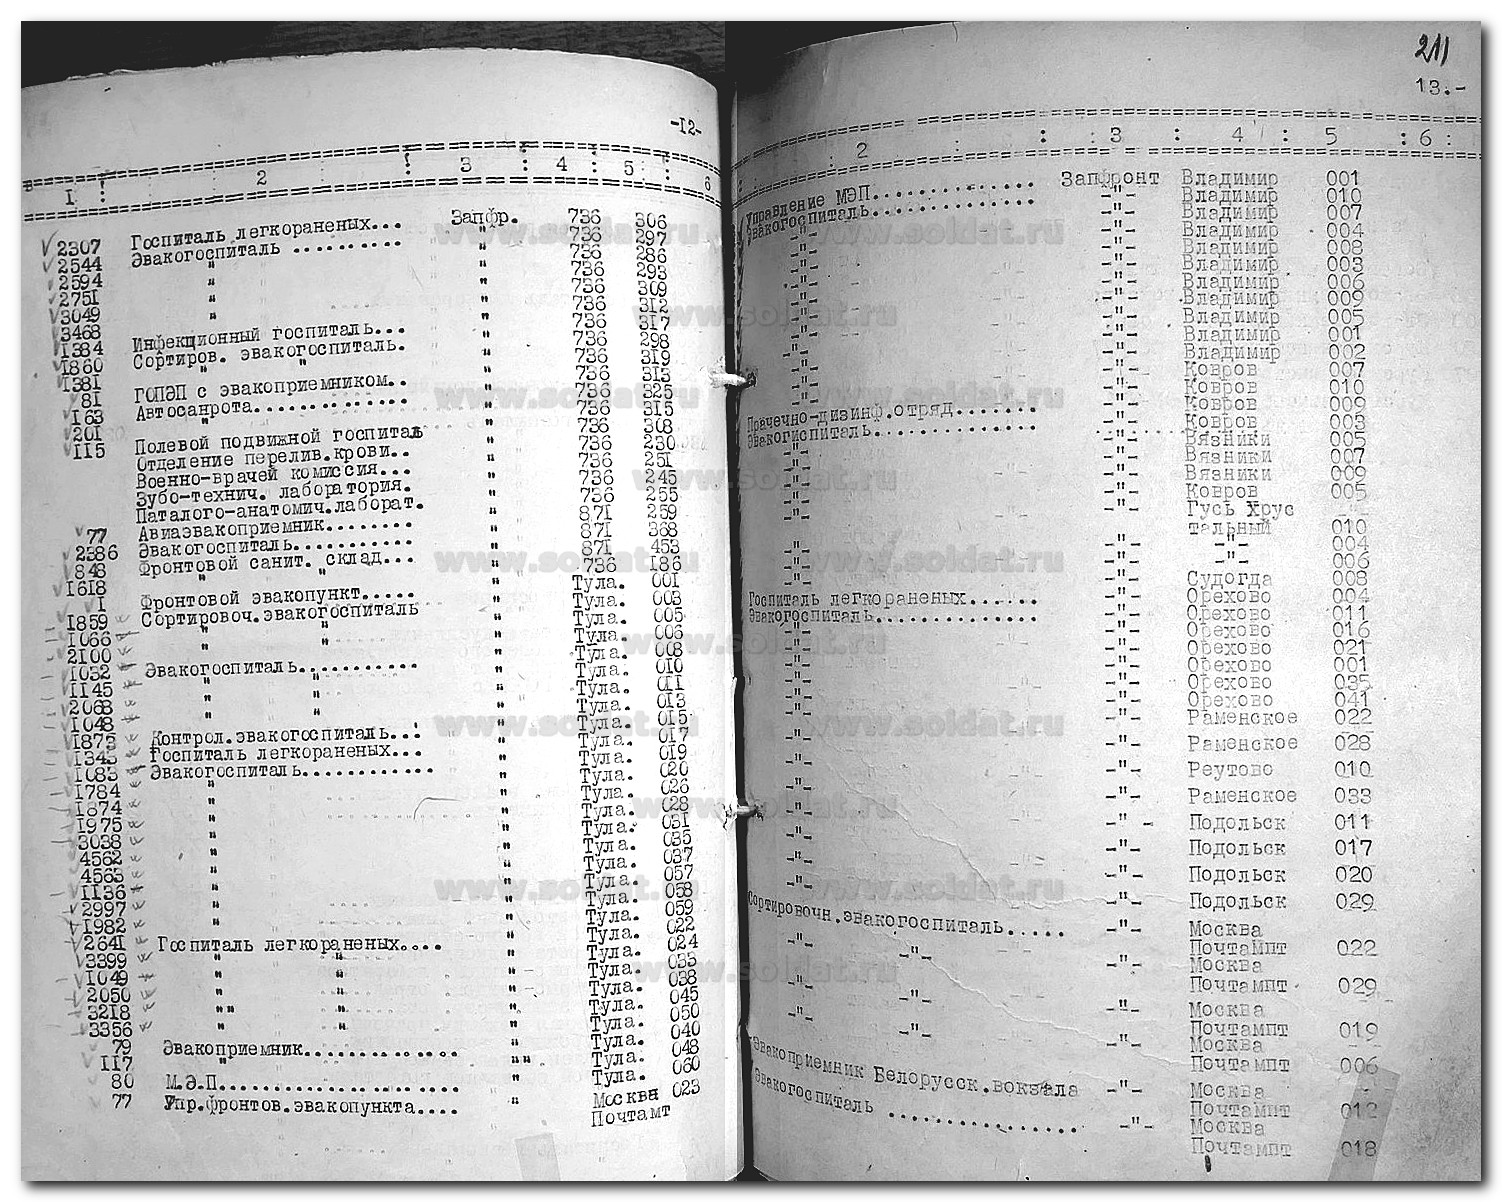 -12-
1 ! 2 ! 3 : 4 : 5 : 6
2307 Госпиталь легкораненых... Запфр. 736 306
2544 Эвакогоспиталь .......... " 736 297
2594 " " 736 286
2751 " " 736 293
3049 " " 736 309
3468 " " 736 312
1384 Инфекционный госпиталь... " 736 317
1860 Сортиров. эвакогоспиталь. " 736 298
1381 " " " 736 319
81 ГОПЭП с эвакоприемником.. " 736 313
163 Автосанрота.............. " 736 325
201 " " 736 315
115 Полевой подвижной госпиталь " 736 308
Отделение перелив.крови.. " 736 230
Военно-врачей комиссия... " 736 251
Зубо-технич. лаборатория. " 736 245
Паталого-анатомич.лаборат. " 736 255
77 Авиаэвакоприемник........ " 871 259
2386 Эвакогоспиталь........... " 871 368
848 Фронтовой санит. склад... " 871 453
1618 " " " 736 186
1 Фронтовой эвакопункт..... " Тула. 001
1859 Сортировоч.эвакогоспиталь " Тула. 003
1066 " " " Тула. 005
2100 " " " Тула. 006
1032 Эвакогоспиталь........... " Тула. 008
1145 " " " Тула. 010
2068 " " " Тула. 011
1048 " " " Тула. 013
1873 Контрол.эвакогоспиталь... " Тула. 015
1343 Госпиталь легкораненых... " Тула. 017
1083 Эвакогоспиталь............ " Тула. 019
1784 " " Тула. 020
1874 " " Тула. 026
1975 " " Тула. 028
3038 " " Тула. 031
4562 " " Тула. 035
4563 " " Тула. 037
1136 " " Тула. 057
2997 " " Тула. 058
1982 " " Тула. 059
2641 Госпиталь легкораненых.... " Тула. 022
3399 " " " Тула. 024
1049 " " " Тула. 033
2050 " " " Тула. 038
3218 " " " Тула. 045
3356 " " " Тула. 050
79 Эвакоприемник.............. " Тула. 040
117 " " Тула. 048
80 М.Э.П...................... " Тула. 060
77 Упр.фронтов.эвакопункта.... " Москва 023
Почтамт
211
13.-
: 2 : 3 : 4 : 5 : 6 :
Управление МЭП.............. Запфронт Владимир 001
Эвакогоспиталь.............. -"- Владимир 010
-"- -"- Владимир 007
-"- -"- Владимир 004
-"- -"- Владимир 008
-"- -"- Владимир 003
-"- -"- Владимир 006
-"- -"- Владимир 009
-"- -"- Владимир 005
-"- -"- Владимир 001
-"- -"- Владимир 002
-"- -"- Ковров 007
-"- -"- Ковров 010
Прачечно-дизинф.отряд....... -"- Ковров 009
Эвакогиспиталь.............. -"- Ковров 003
-"- -"- Вязники 005
-"- -"- Вязники 007
-"- -"- Вязники 009
-"- -"- Ковров 005
-"- -"- Гусь Хрус
тальный 010
-"- -"- -"- 004
-"- -"- -"- 006
-"- -"- Судогда 008
Госпиталь легкораненых...... -"- Орехово 004
Эвакогоспиталь.............. -"- Орехово 011
-"- -"- Орехово 016
-"- -"- Орехово 021
-"- -"- Орехово 001
-"- -"- Орехово 035
-"- -"- Орехово 041
-"- -"- Раменское 022
-"- -"- Раменское 028
-"- -"- Реутово 010
-"- -"- Раменское 033
-"- -"- Подольск 011
-"- -"- Подольск 017
-"- -"- Подольск 020
-"- -"- Подольск 029
Сортировочн.эвакогоспиталь..... -"- Москва
Почтампт 022
-"- -"- -"- Москва
Почтампт 029
-"- -"- -"- Москва
Почтампт 019
-"- -"- -"- Москва
Почтампт 006
Эвакоприемник Белорусск.вокзала -"- Москва
Почтампт 012
Эвакогоспиталь .............. -"- Москва
Почтампт 018
www.soldat.ru